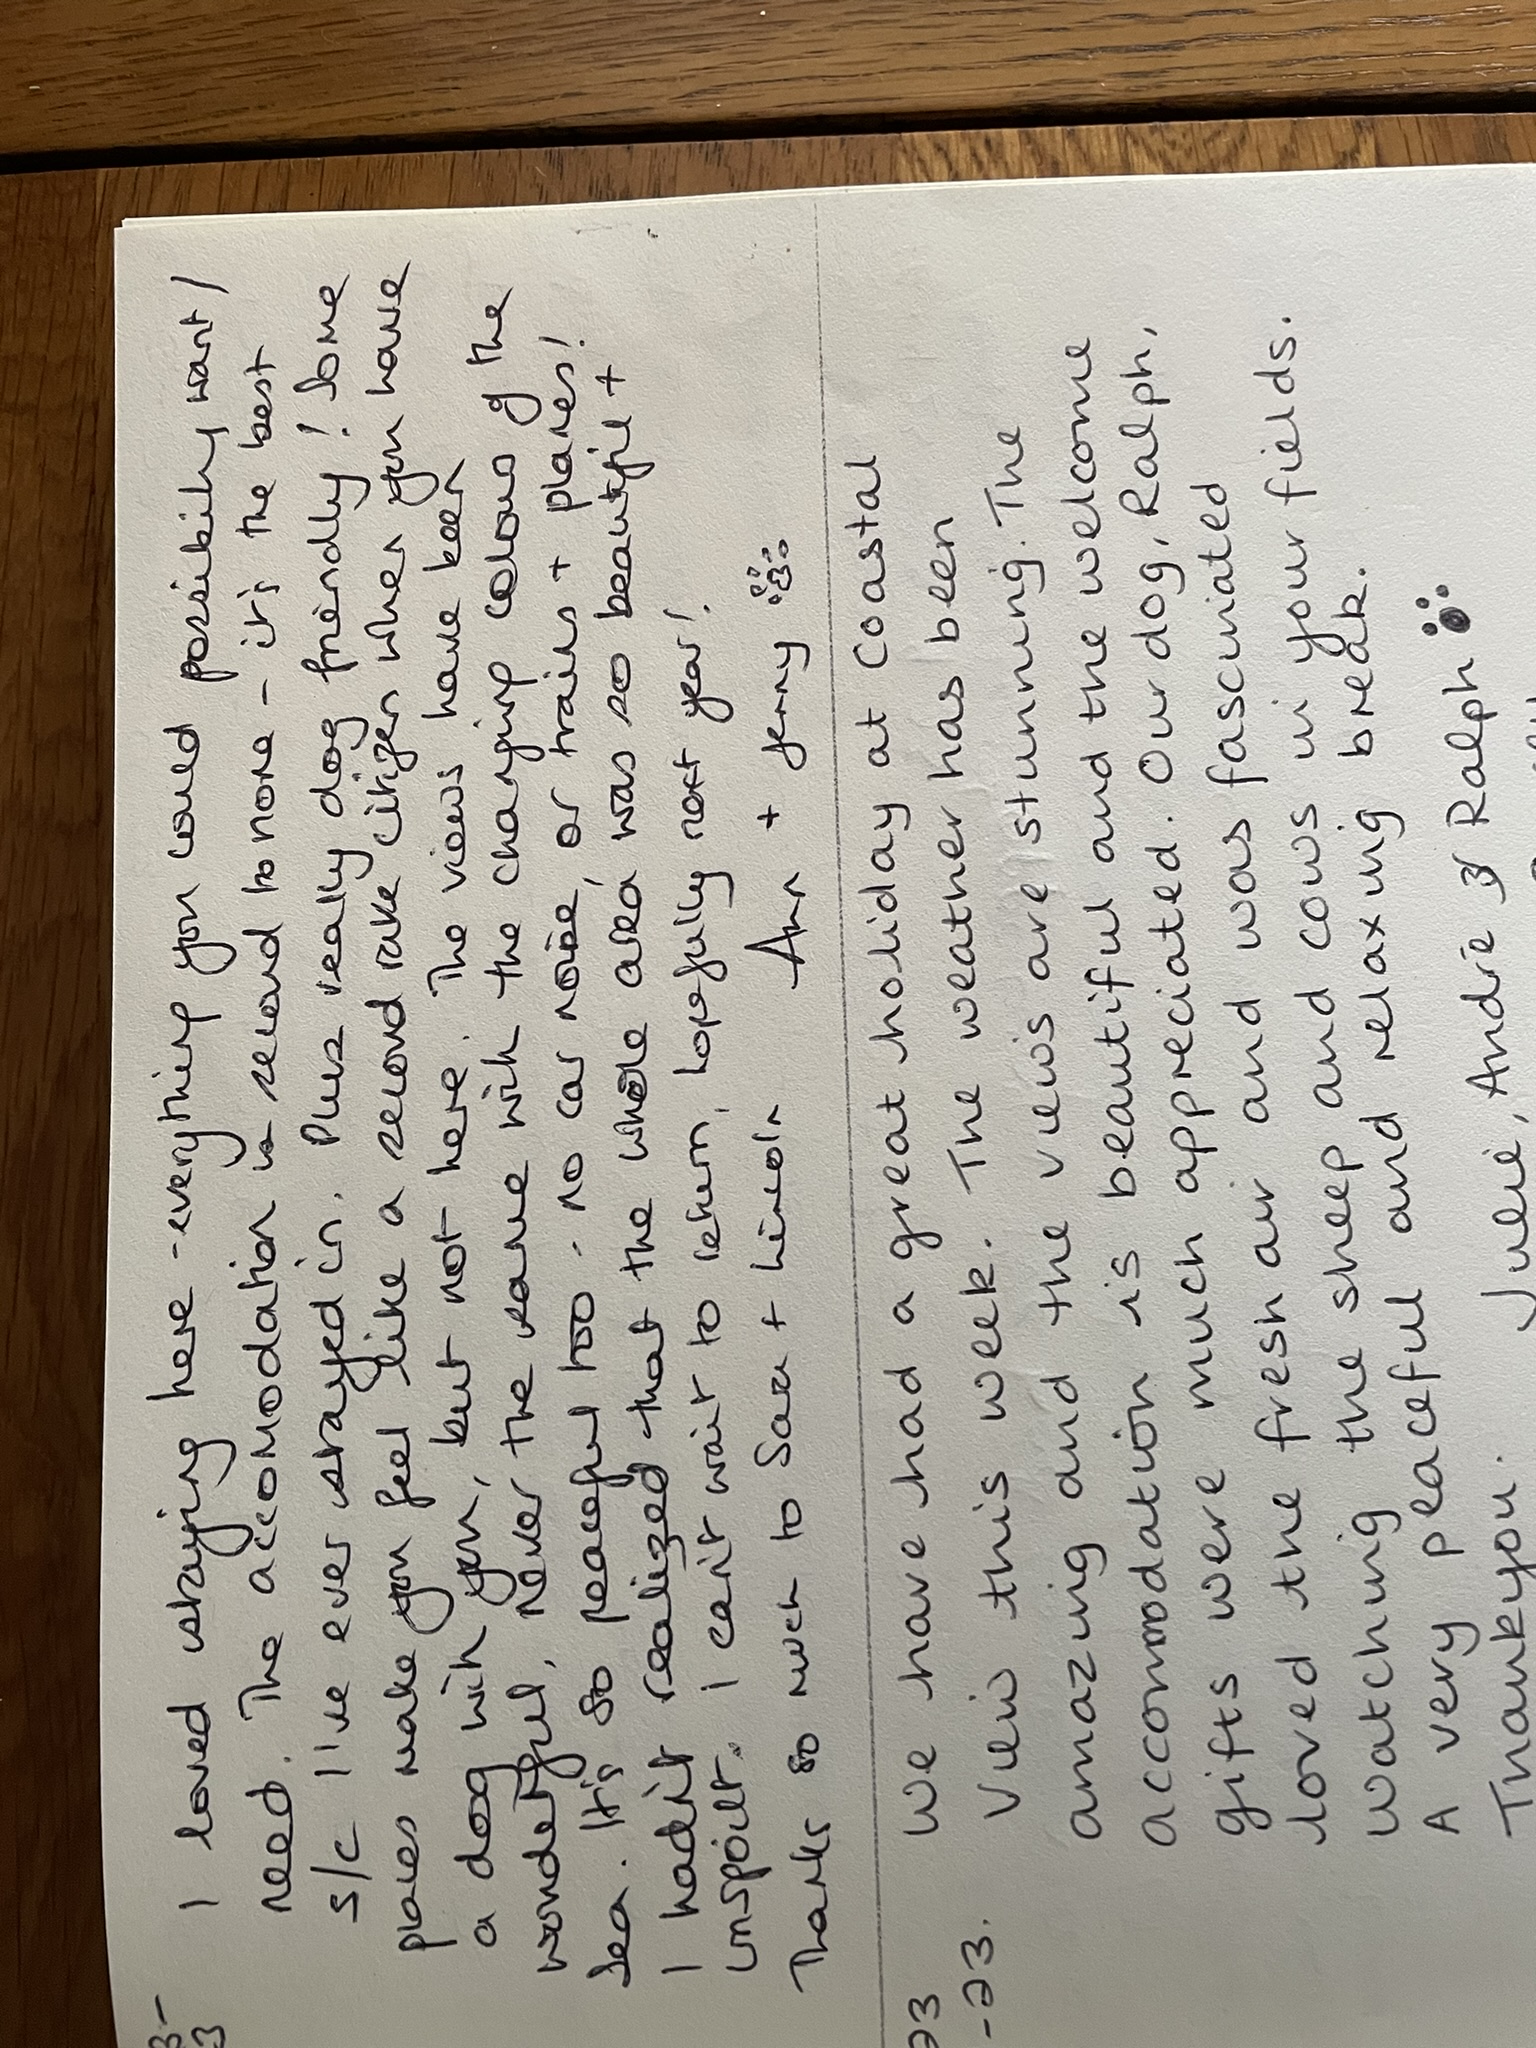 3-
3
I loved staying here - everything you could possibly want /
need. The accomodation is second to none - it's the best
s/c I've ever stayed in. Plus really dog friendly! Some
places make you feel like a second rate citizen when you have
a dog with you, but not here. The views have been
wonderful, never the same with the changing colour of the
sea. It's so peaceful too - no car noise, or trains + planes!
I hadn't realized that the whole area was so beautiful +
unspoilt. I can't wait to return, hopefully next year!
Thanks so much to Sara + Lincoln Ann + Jenny
23
-23.
We have had a great holiday at Coastal
View this week. The weather has been
amazing and the views are stunning. The
accommodation is beautiful and the welcome
gifts were much appreciated. Our dog, Ralph,
loved the fresh air and was fascinated
watching the sheep and cows in your fields.
A very peaceful and relaxing break.
Thankyou. Julie, Andie & Ralph